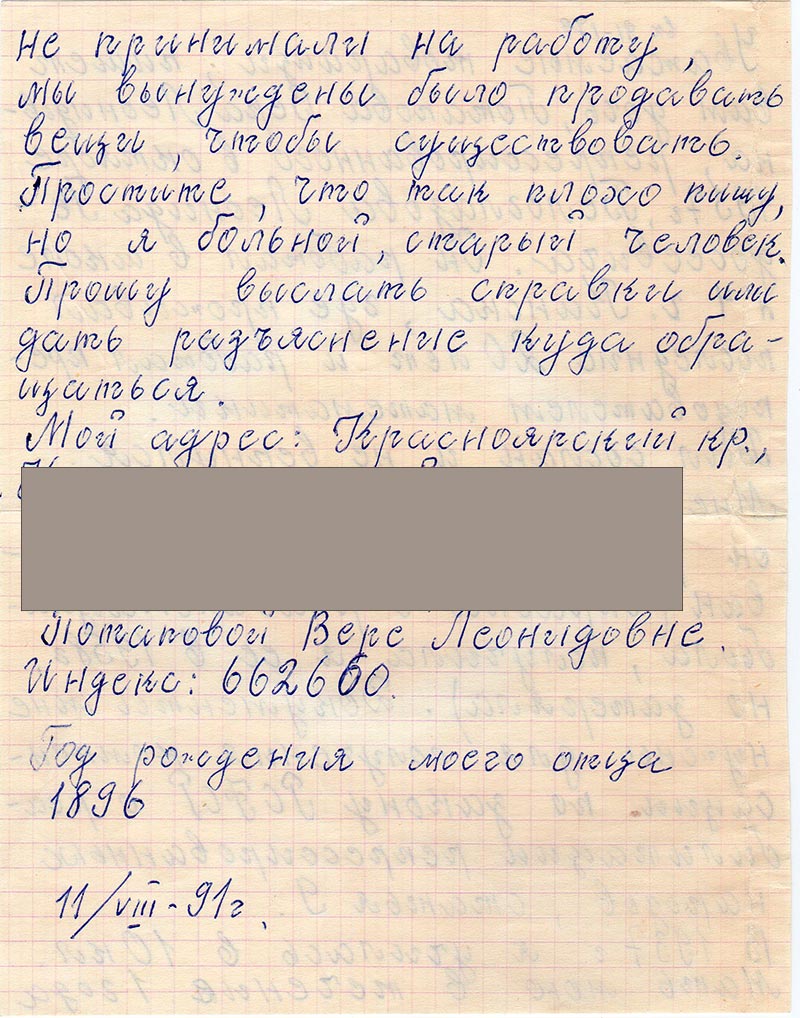 не принимали на работу,
мы вынуждены было продавать
вещи, чтобы существовать.
Простите, что так плохо пишу,
но я больной, старый человек.
Прошу выслать справки или
дать разъяснение куда обра-
щаться.
Мой адрес: Красноярский кр.,
Потаповой Вере Леонидовне.
Индекс: 662660.
Год рождения моего отца
1896
11/VIII-91г.